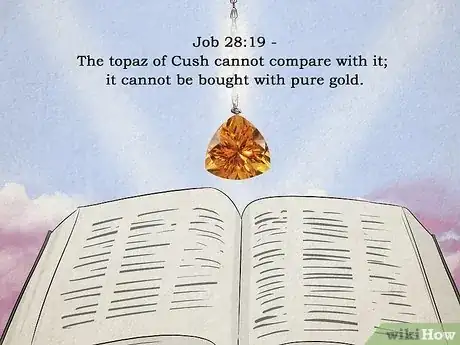 Job 28:19 -
The topaz of Cush cannot compare with it;
it cannot be bought with pure gold.
wikiHow